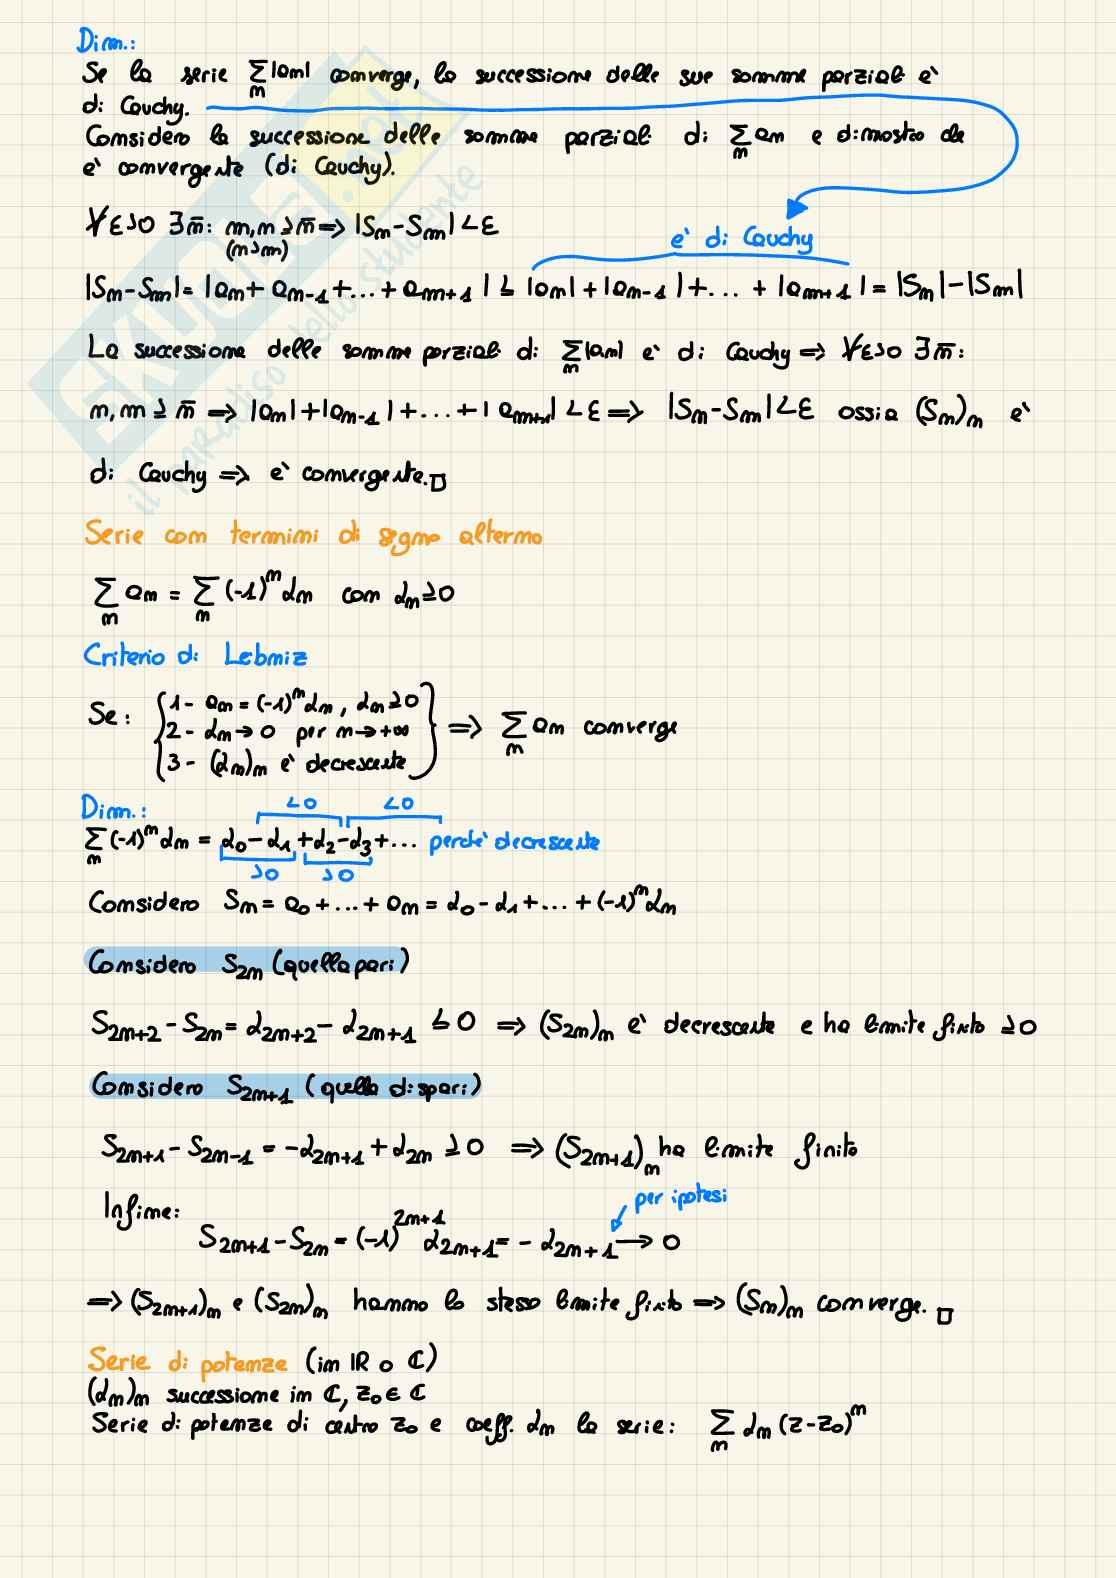 Dim.:
Se la serie ∑_n |a_n| converge, la successione delle sue somme parziali è
di Cauchy.
Considero la successione delle somme parziali di ∑_n a_n e dimostro che
è convergente (di Cauchy).
∀ε>0 ∃n̄: m,n ≥ n̄ ⟹ |S_n - S_m| < ε
(n>m)
è di Cauchy
|S_n - S_m| = |a_n + a_{n-1} + ... + a_{m+1}| ≤ |a_n| + |a_{n-1}| + ... + |a_{m+1}| = |S_n| - |S_m|
La successione delle somme parziali di ∑_n |a_n| è di Cauchy ⟹ ∀ε>0 ∃n̄:
n,m ≥ n̄ ⟹ |a_n| + |a_{n-1}| + ... + |a_{m+1}| < ε ⟹ |S_n - S_m| < ε ossia (S_n)_n è
di Cauchy ⟹ è convergente. □
Serie con termini di segno alterno
∑_n a_n = ∑_n (-1)^n α_n con α_n ≥ 0
Criterio di Lebniz
Se: { 1 - a_n = (-1)^n α_n, α_n ≥ 0
2 - α_n → 0 per n → +∞
3 - (α_n)_n è decrescente } ⟹ ∑_n a_n converge
Dim.:
<0 <0
∑_n (-1)^n α_n = α_0 - α_1 + α_2 - α_3 + ... perché decrescente
>0 >0
Considero S_n = a_0 + ... + a_n = α_0 - α_1 + ... + (-1)^n α_n
Considero S_{2n} (quella pari)
S_{2n+2} - S_{2n} = α_{2n+2} - α_{2n+1} ≤ 0 ⟹ (S_{2n})_n è decrescente e ha limite finito ≥ 0
Considero S_{2n+1} (quella dispari)
S_{2n+1} - S_{2n-1} = -α_{2n+1} + α_{2n} ≥ 0 ⟹ (S_{2n+1})_n ha limite finito
per ipotesi
Infine:
S_{2n+1} - S_{2n} = (-1)^{2n+1} α_{2n+1} = - α_{2n+1} → 0
⟹ (S_{2n+1})_n e (S_{2n})_n hanno lo steso limite finito ⟹ (S_n)_n converge. □
Serie di potenze (in ℝ o ℂ)
(α_n)_n successione in ℂ, z_0 ∈ ℂ
Serie di potenze di centro z_0 e coeff. α_n la serie: ∑_n α_n (z - z_0)^n
Skuola.net
il paradiso dello studente